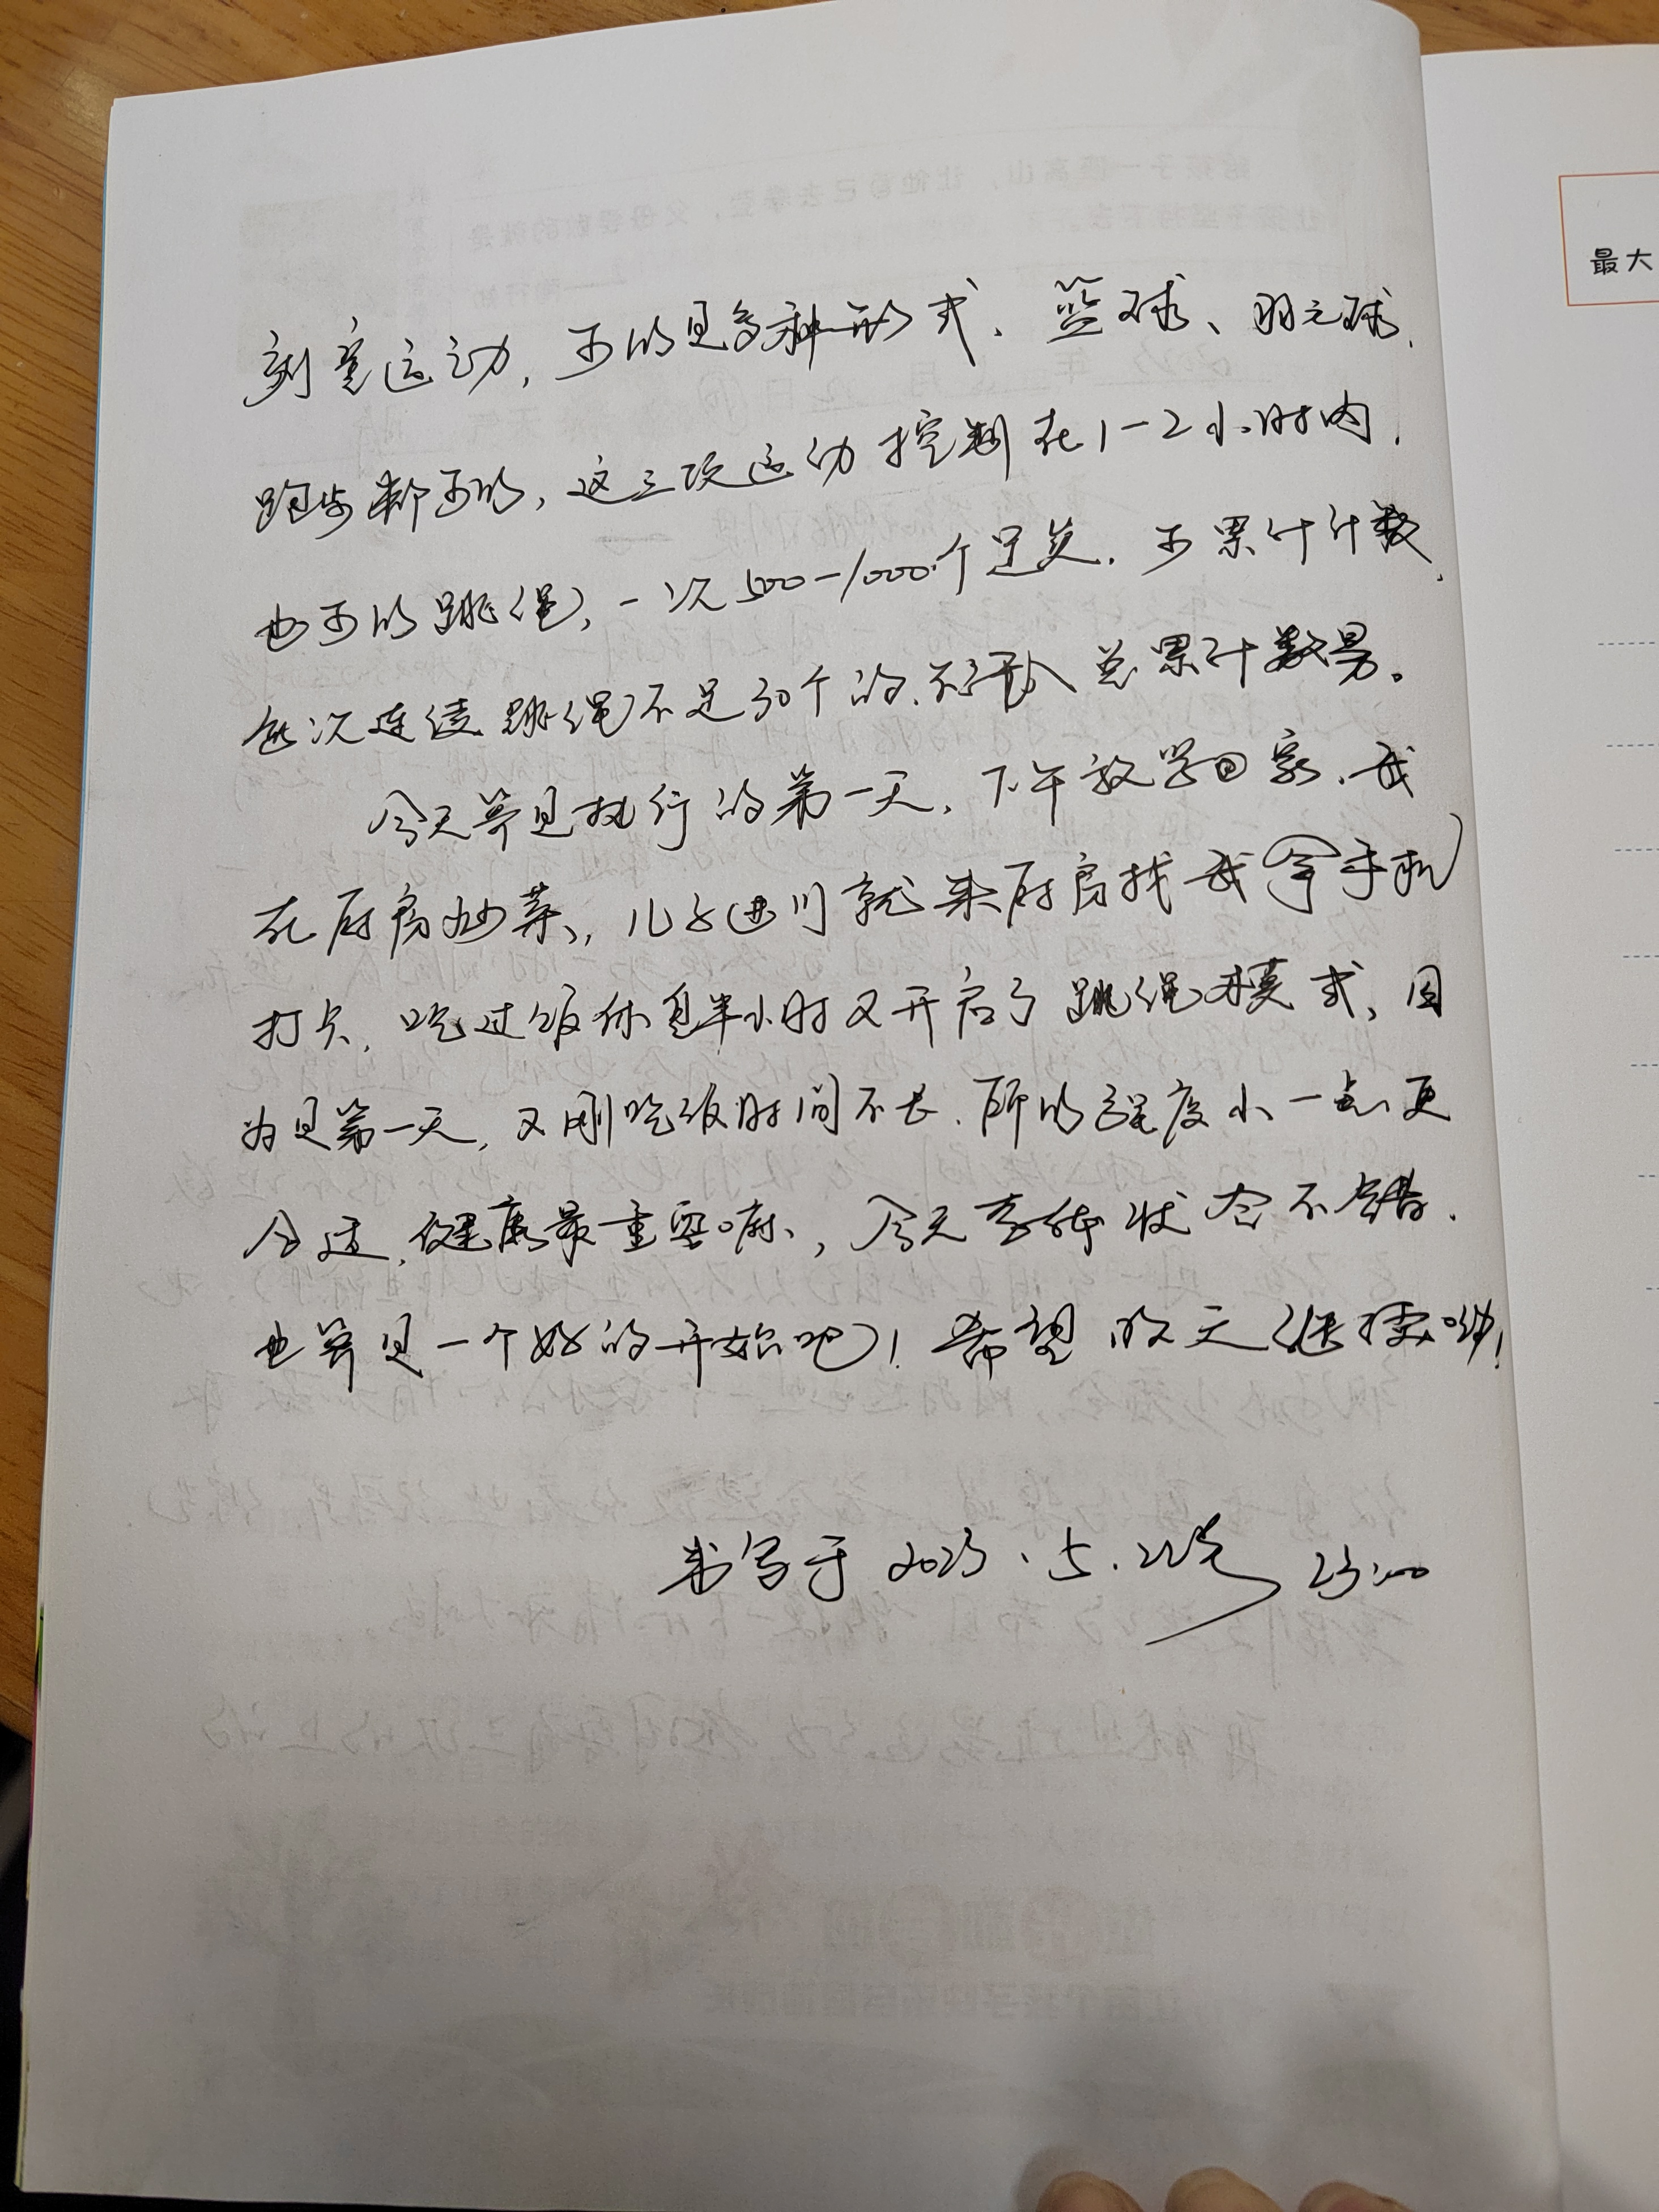 刻意运动,可以是多种形式、篮球、羽毛球、
跑步都可以,这三项运动控制在1-2小时内,
也可以跳绳,一次500-1000个足矣.可累计计数,
每次连续跳绳不足30个的.不予计入总累计数易。
今天算是执行的第一天,下午放学回家.我
在厨房炒菜,儿子进门就来厨房找我拿手机
打卡,吃过饭休息半小时又开启了跳绳模式,因
为是第一天,又刚吃饭时间不长.所以强度小一点更
合适,健康最重要嘛,今天幸能状态不错.
也算是一个好的开始吧!希望明天继续哟!
书写于2023.5.22号 23:00
最大